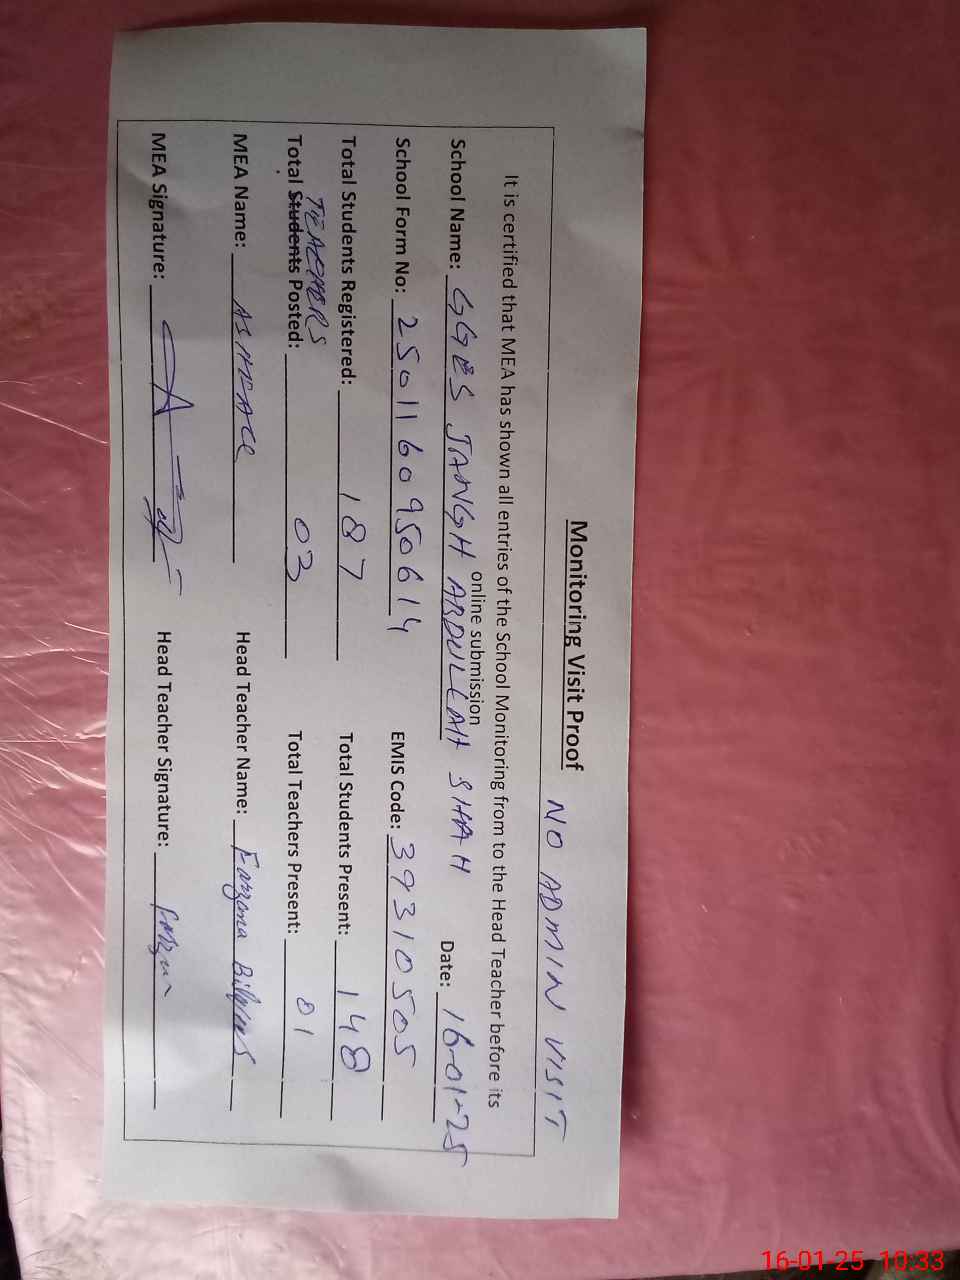 Monitoring Visit Proof NO ADMIN VISIT
It is certified that MEA has shown all entries of the School Monitoring from to the Head Teacher before its
online submission
School Name: GGES JANGH ABDULLAH SHAH Date: 16-01-25
School Form No: 2501160950614 EMIS Code: 39310505
Total Students Registered: 187 Total Students Present: 148
TEACHERS
Total Students Posted: 03 Total Teachers Present: 01
MEA Name: Head Teacher Name: Farzana
MEA Signature: Head Teacher Signature:
16-01-25 10:33